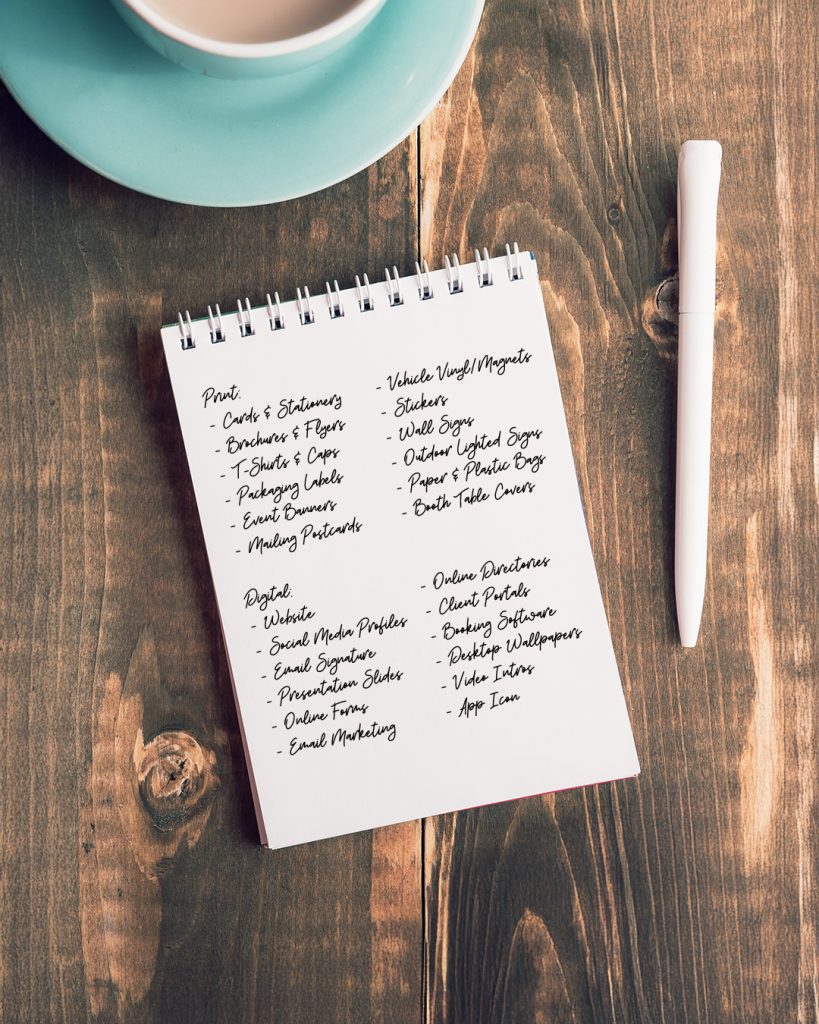 Print:
- Cards & Stationery
- Brochures & Flyers
- T-Shirts & Caps
- Packaging Labels
- Event Banners
- Mailing Postcards
- Vehicle Vinyl/Magnets
- Stickers
- Wall Signs
- Outdoor Lighted Signs
- Paper & Plastic Bags
- Booth Table Covers
Digital:
- Website
- Social Media Profiles
- Email Signature
- Presentation Slides
- Online Forms
- Email Marketing
- Online Directories
- Client Portals
- Booking Software
- Desktop Wallpapers
- Video Intros
- App Icon